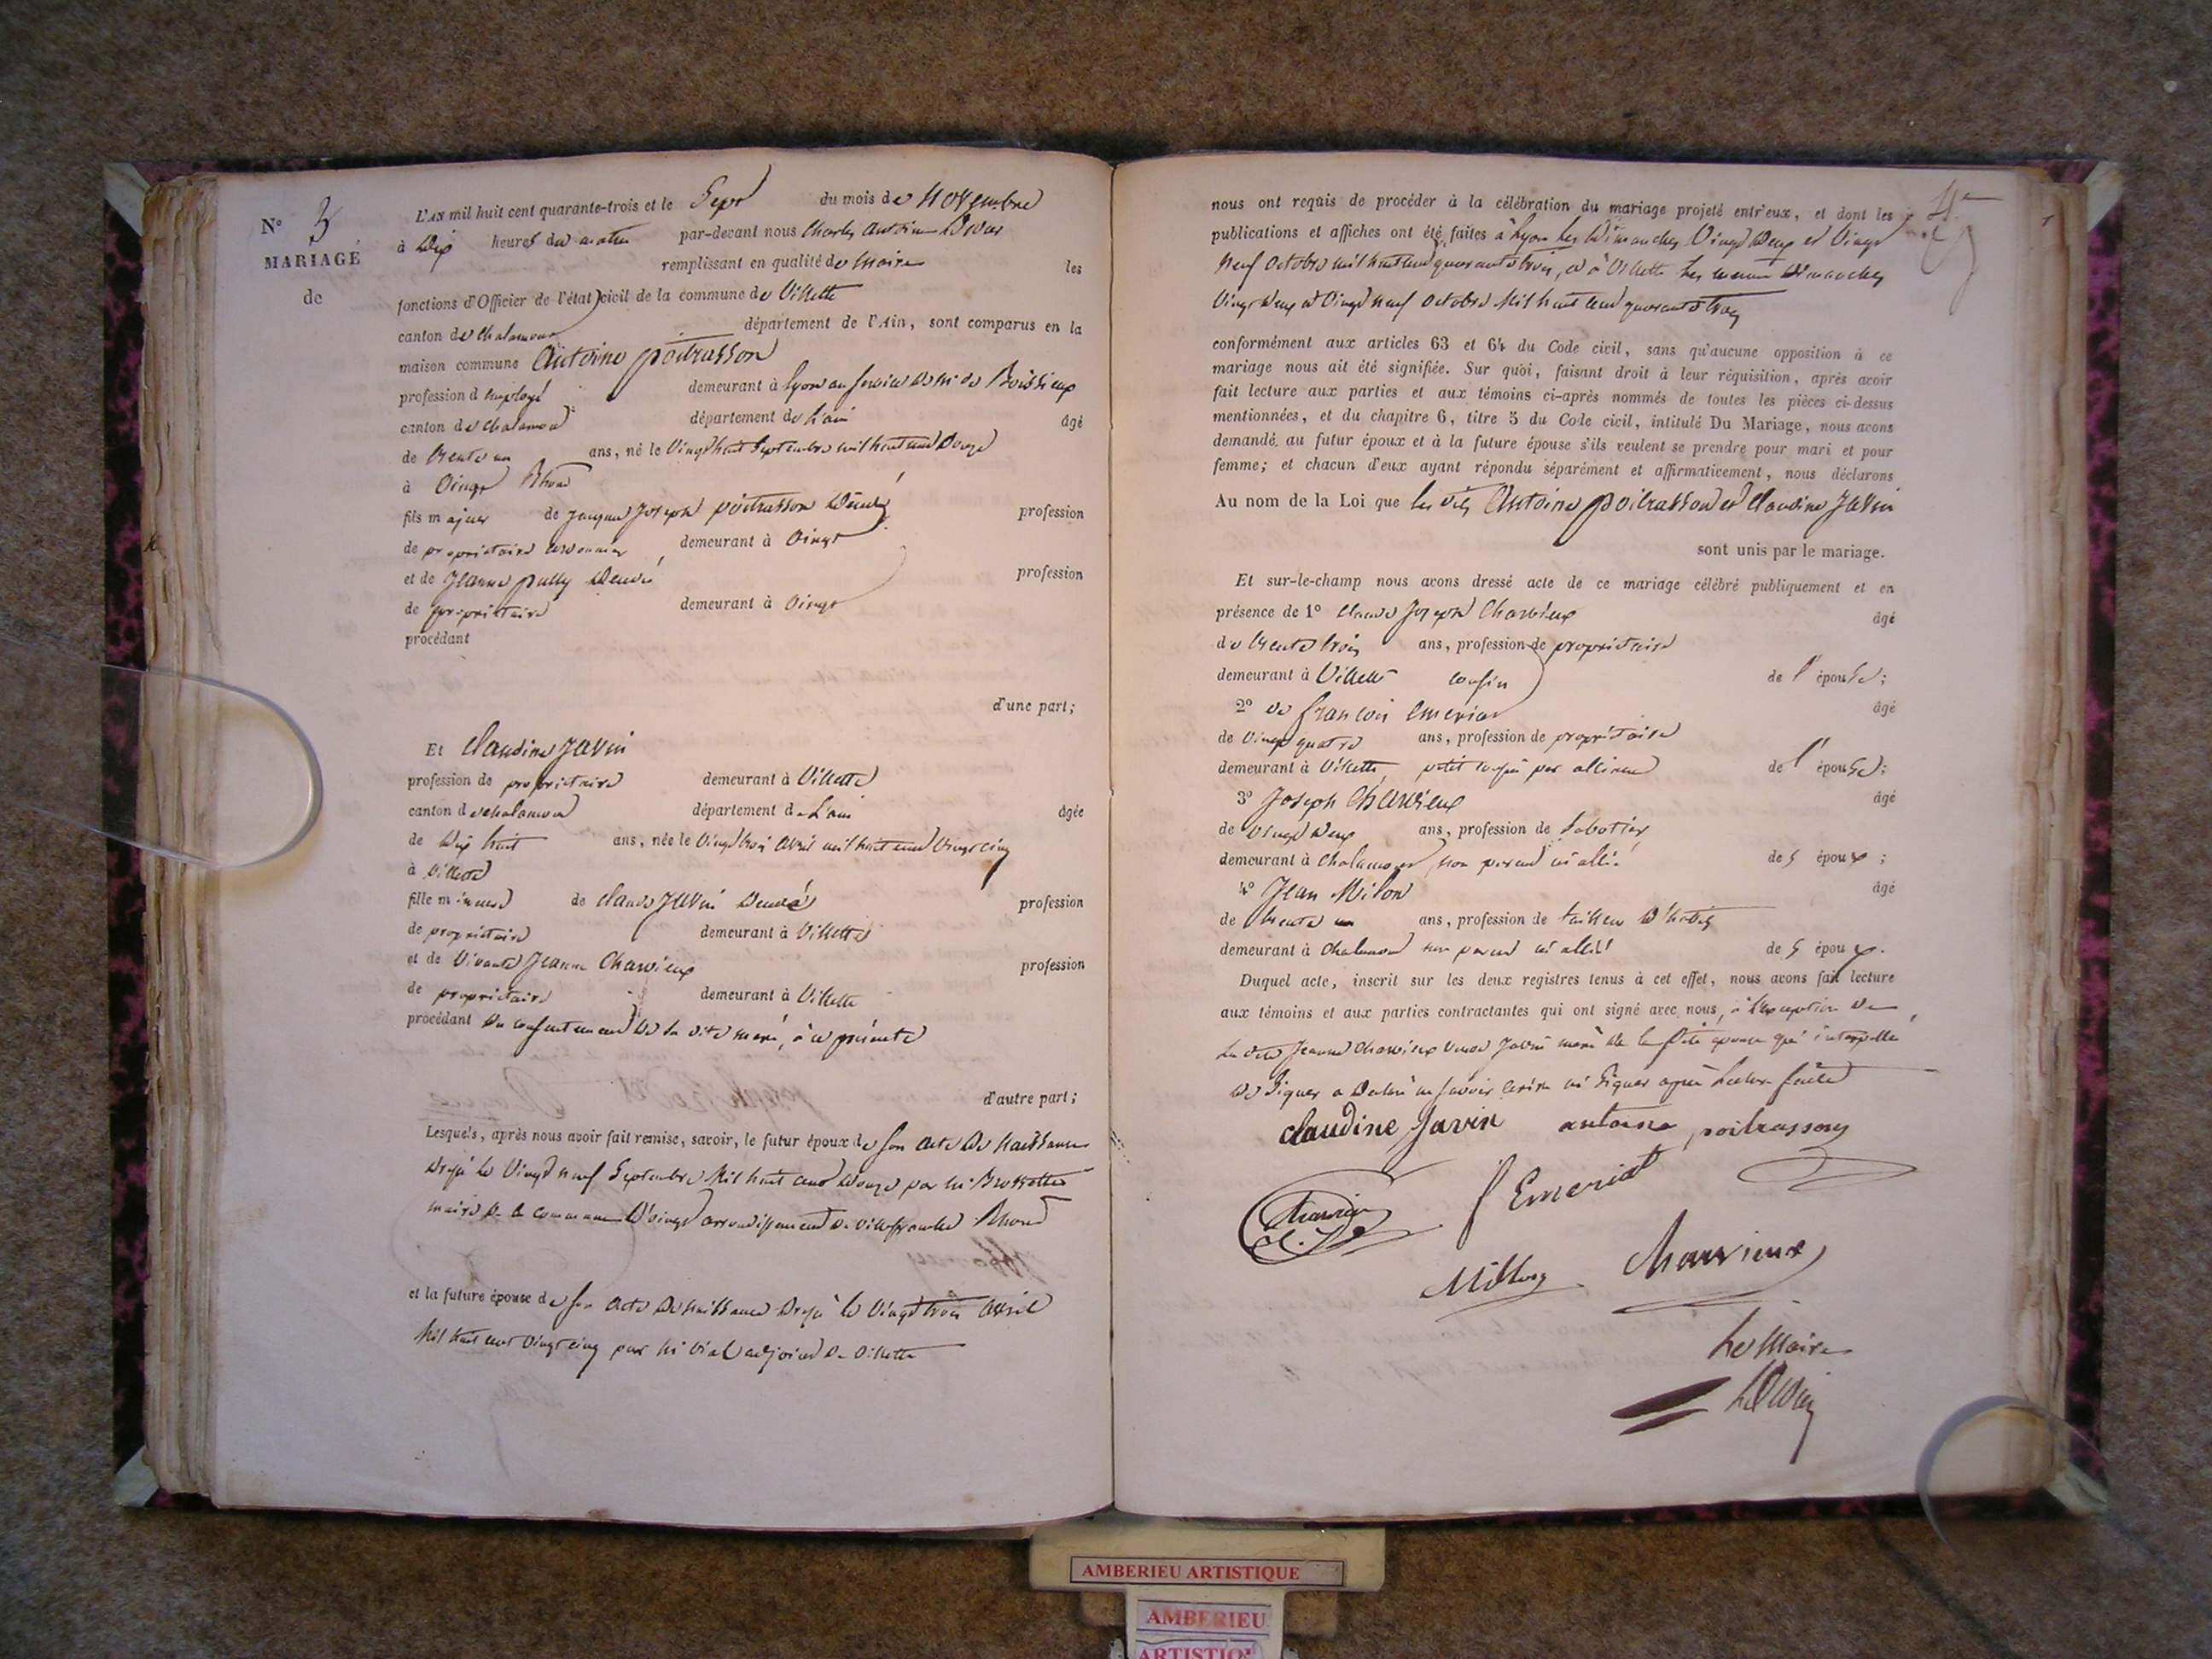 N° 3
MARIAGE
de
L'AN mil huit cent quarante-trois et le Sept du mois de Novembre
à Dix heures du matin par-devant nous Charles Antoine
remplissant en qualité de Maire les
fonctions d'Officier de l'état civil de la commune de Villette
canton de Chalamont département de l'Ain, sont comparus en la
maison commune Antoine poitrasson
profession d employé demeurant à Lyon au service de Mr de Boissieux
canton de Chalamont département de L'ain âgé
de trente un ans, né le Vingt huit Septembre mil huit cent Douze
à Oingt Rhône
fils majeur de Jacques Joseph poitrasson Décédé profession
de propriétaire cordonnier demeurant à Oingt
et de Jeanne pully Décédée profession
de propriétaire demeurant à Oingt
procédant
d'une part;
ET Claudine Javin
profession de propriétaire demeurant à Villette
canton de chalamont département de L'ain âgée
de Dix huit ans, née le Vingt trois Avril mil huit cent Vingt cinq
à Villette
fille mineure de Claude Javin Décédé profession
de propriétaire demeurant à Villette
et de Vivante Jeanne Charvieux profession
de propriétaire demeurant à Villette
procédant du consentement de sa dite mère, à ce présente
d'autre part;
Lesquels, après nous avoir fait remise, savoir, le futur époux de son acte de Naissance
Dressé le Vingt neuf Septembre Mil huit cent Douze par Mr Brossette
maire de la commune D'oingt arrondissement de Villefranche Rhône
et la future épouse de son acte De naissance Dressé le Vingt trois Avril
Mil huit cent Vingt cinq par Mr Vial adjoint de Villette
nous ont requis de procéder à la célébration du mariage projeté entr'eux, et dont les
publications et affiches ont été faites à Lyon les Dimanches Vingt Deux et Vingt
Neuf Octobre mil huit cent quarante trois, et à Villette les memes Dimanches
Vingt Deux et Vingt neuf octobre Mil huit cent quarante trois
conformément aux articles 63 et 64 du Code civil, sans qu'aucune opposition à ce
mariage nous ait été signifiée. Sur quoi, faisant droit à leur réquisition, après avoir
fait lecture aux parties et aux témoins ci-après nommés de toutes les pièces ci-dessus
mentionnées, et du chapitre 6, titre 5 du Code civil, intitulé Du Mariage, nous avons
demandé au futur époux et à la future épouse s'ils veulent se prendre pour mari et pour
femme; et chacun d'eux ayant répondu séparément et affirmativement, nous déclarons
Au nom de la Loi que les dits Antoine poitrasson et Claudine Javin
sont unis par le mariage.
Et sur-le-champ nous avons dressé acte de ce mariage célébré publiquement et en
présence de 1° Claude Joseph Charvieux âgé
de trente trois ans, profession de propriétaire
demeurant à Villette cousin de l' épouse;
2° de françois Emeriat âgé
de vingt quatre ans, profession de propriétaire
demeurant à Villette, petit cousin par alliance de l' épouse;
3° Joseph Charvieux âgé
de Vingt Deux ans, profession de Sabotier
demeurant à Chalamont, non parent ni allié de s époux ;
4° Jean Milon âgé
de trente un ans, profession de tailleur D'habits
demeurant à Chalamont non parent ni allié de s époux.
Duquel acte, inscrit sur les deux registres tenus à cet effet, nous avons fait lecture
aux témoins et aux parties contractantes qui ont signé avec nous, à l'exception de
la dite Jeanne Charvieux veuve Javin mère de la Dite épouse qui interpellée
de Signer a Déclaré ne savoir écrire ni Signer après lecture faite
claudine Javin antoine poitrasson
f Emeriat
Charvieux
Millon Charvieux
Le Maire
AMBERIEU ARTISTIQUE
AMBERIEU
ARTISTIQ